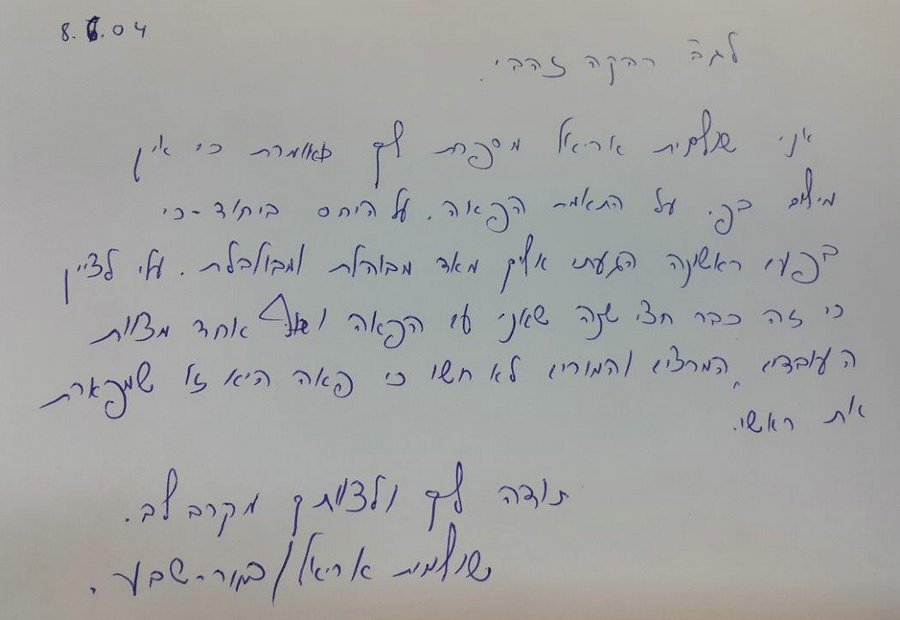 8.6.04
לגב' רבקה זהבי.
אני שולמית אריאל מספרת לך ואומרת כי אין
מילים בפי. על התאמת הפאה. על היחס ביחוד-כי
בפעם ראשונה הגעתי אליך מאד מבוהלת ומבולבלת. עלי לציין
כי זה כבר חצי שנה שאני עם הפאה ואף אחד מצוות
העובדים, המרצים והמורים לא חשו כי פאה היא זו שמפארת
את ראשי.
תודה לך ולצוותך מקרב לב.
שולמית אריאל/באר-שבע.